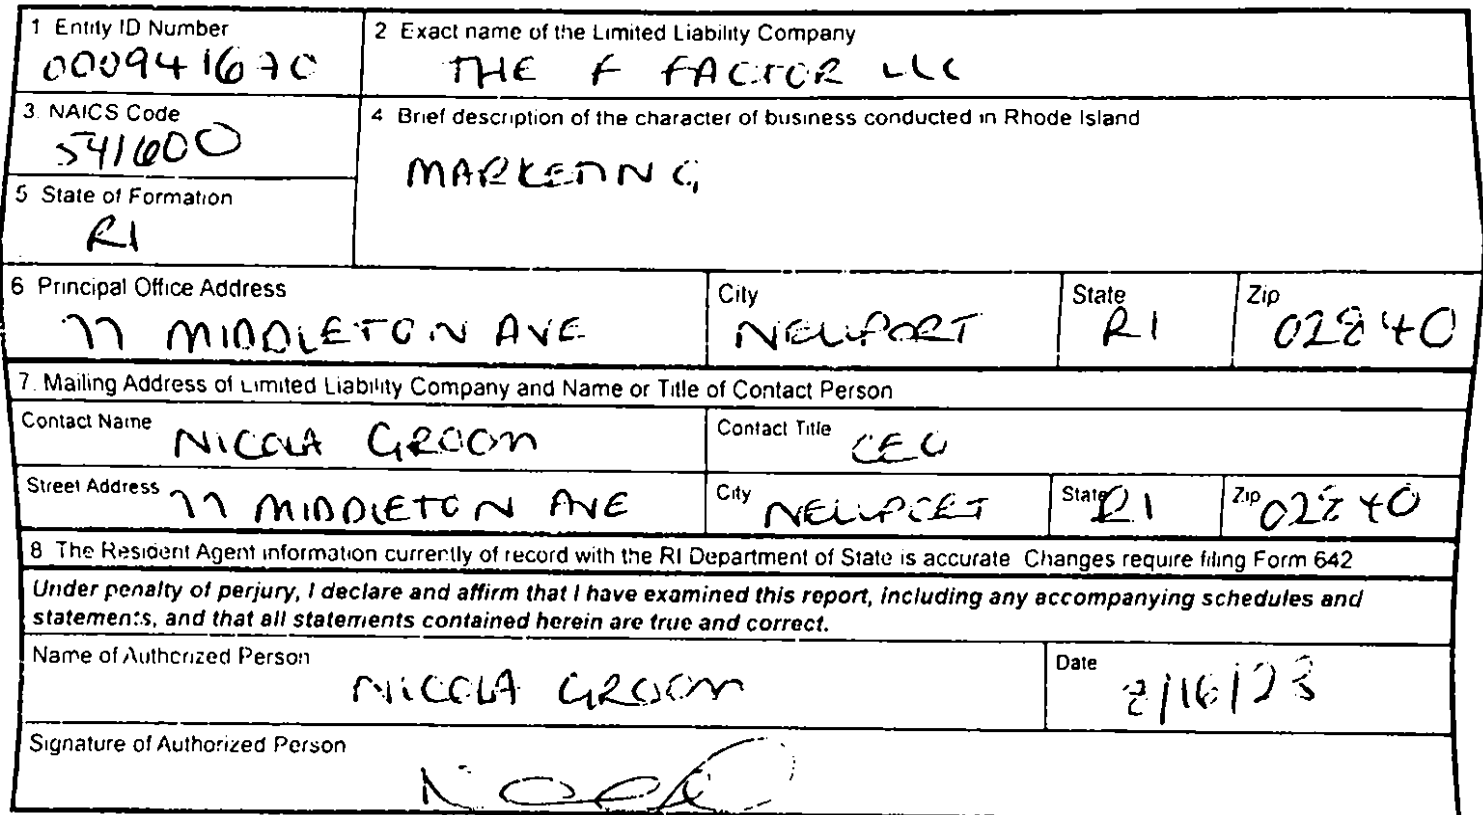 1 Entity ID Number
000941670
2 Exact name of the Limited Liability Company
THE F FACTOR LLC
3. NAICS Code
541600
4 Brief description of the character of business conducted in Rhode Island
MARKETING
5 State of Formation
RI
6 Principal Office Address
77 MIDDLETON AVE
City
NEWPORT
State
RI
Zip
02840
7. Mailing Address of Limited Liability Company and Name or Title of Contact Person
Contact Name NICOLA GROOM
Contact Title CEO
Street Address 77 MIDDLETON AVE
City NEWPORT
State RI
Zip 02840
8 The Resident Agent information currently of record with the RI Department of State is accurate Changes require filing Form 642
Under penalty of perjury, I declare and affirm that I have examined this report, including any accompanying schedules and
statements, and that all statements contained herein are true and correct.
Name of Authorized Person
NICOLA GROOM
Date
2/16/23
Signature of Authorized Person